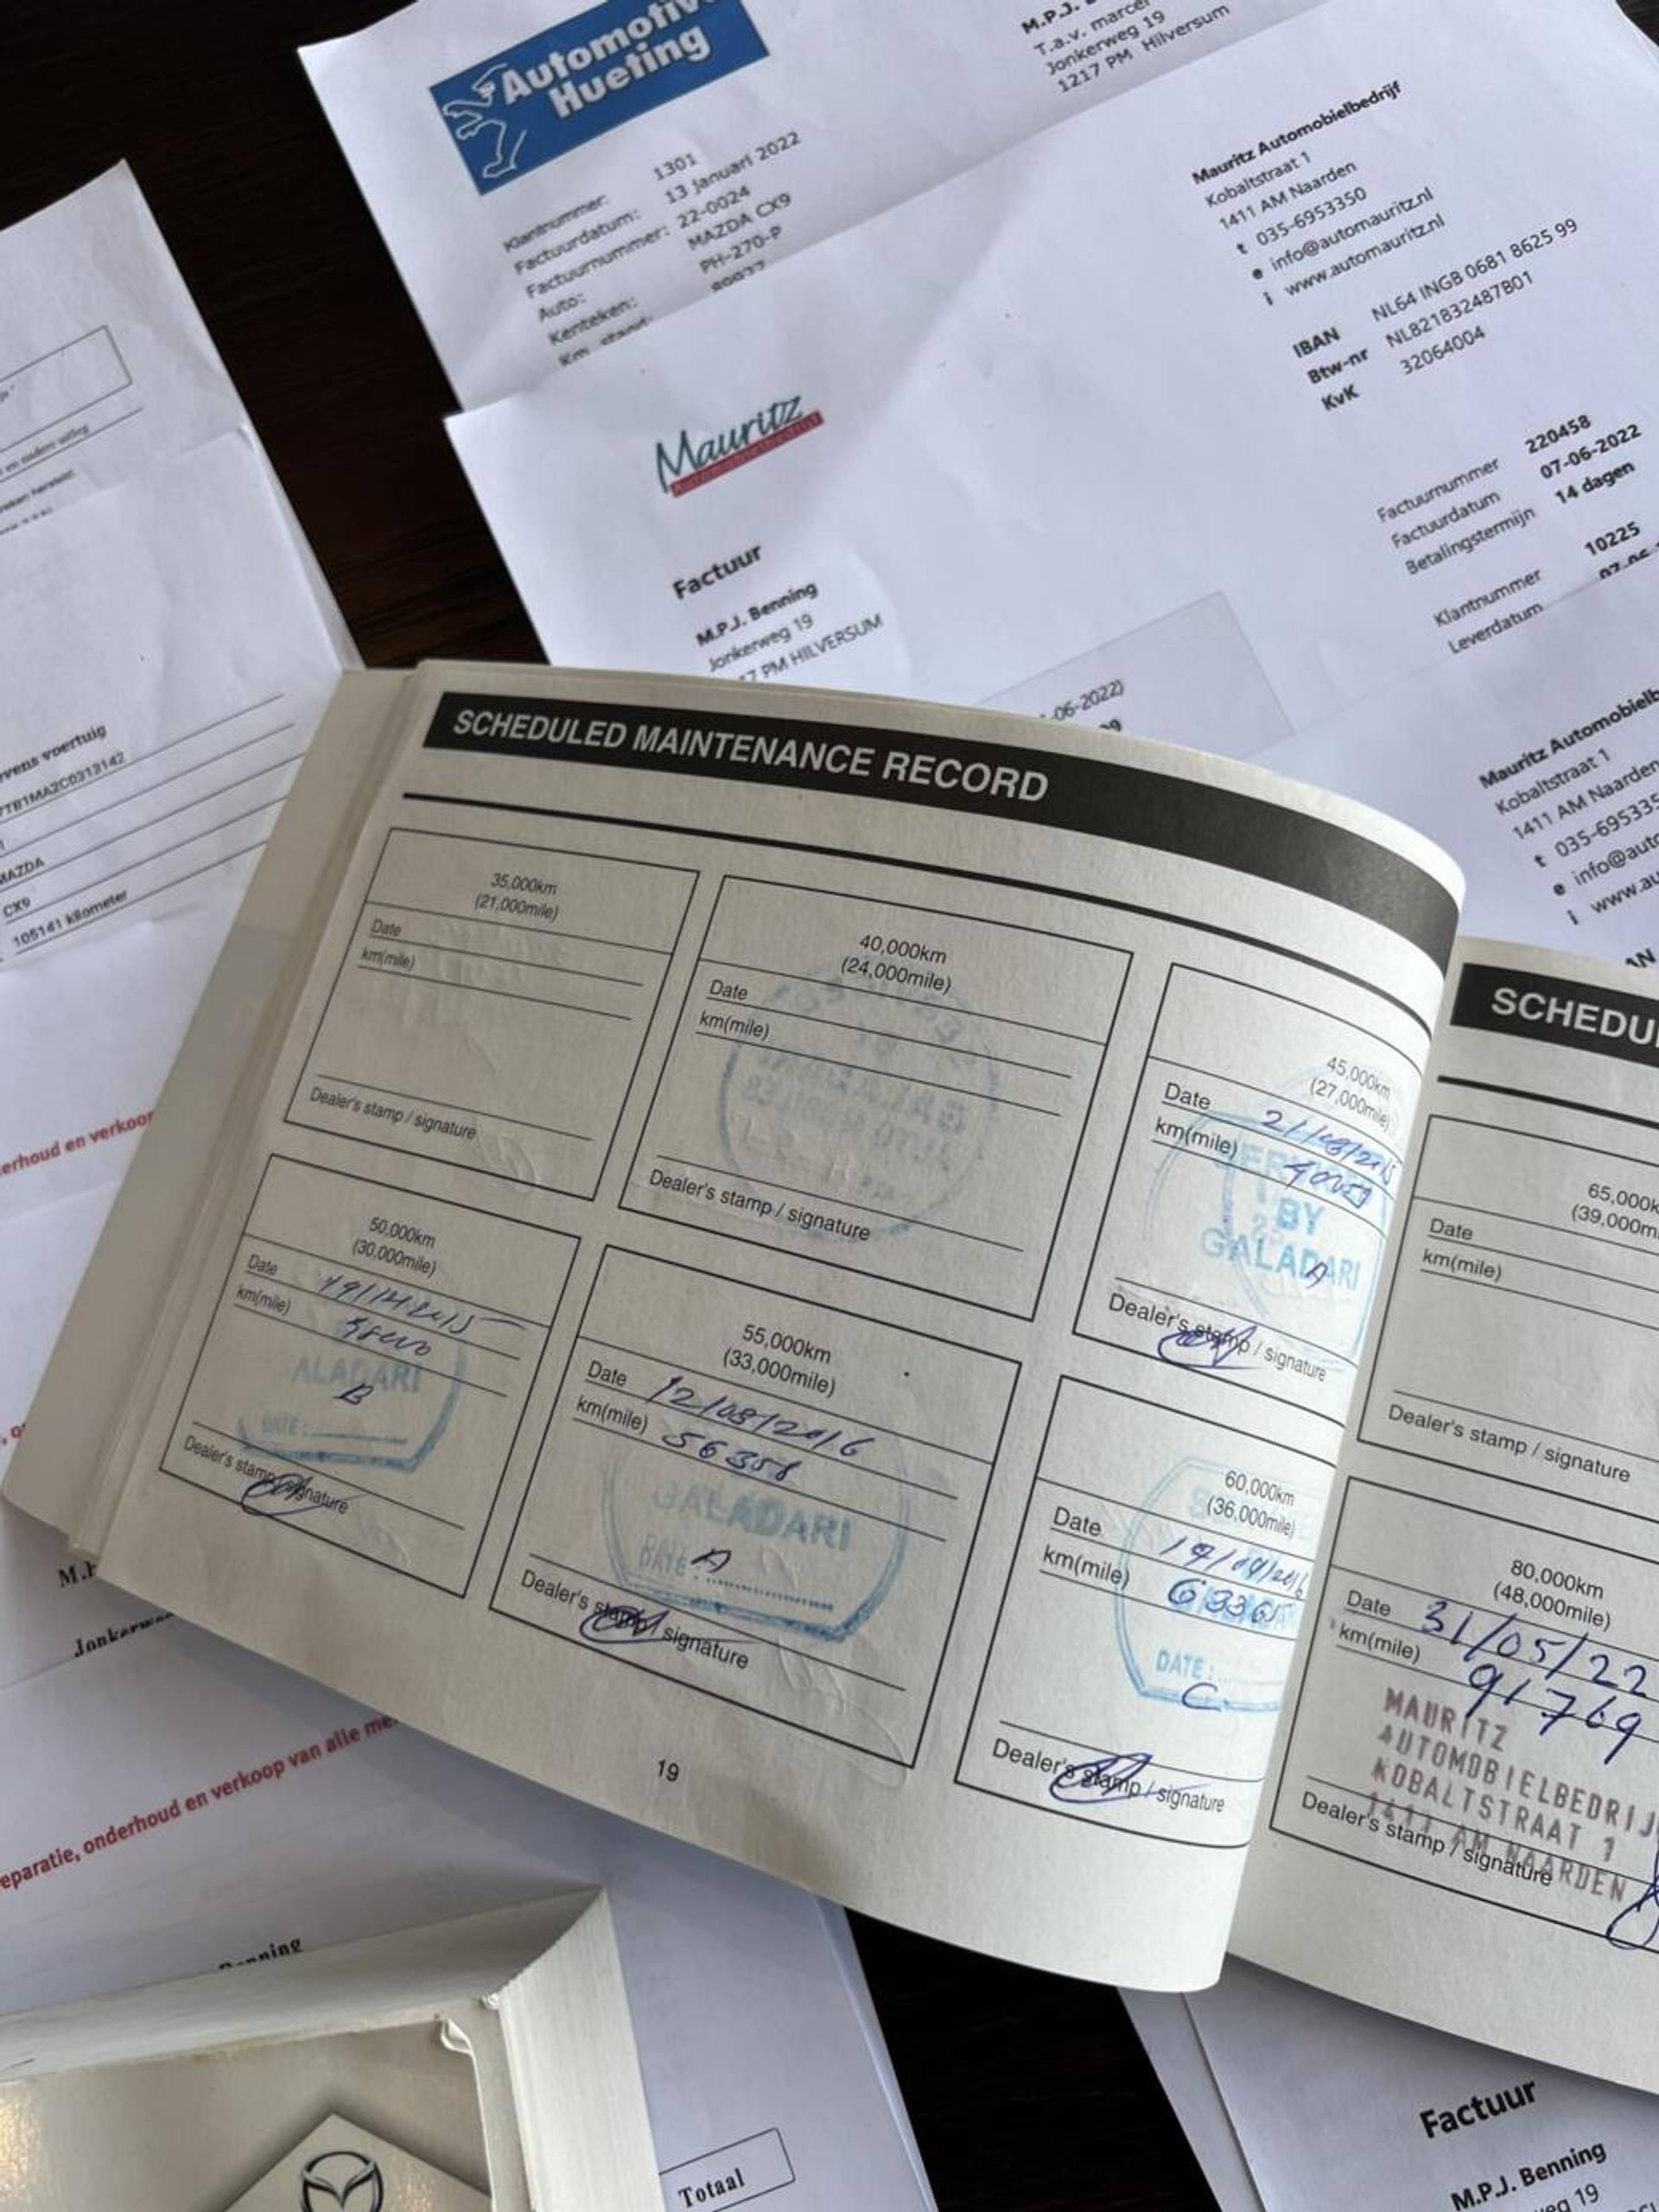 Automotive
Hueting
Klantnummer: 1301
Factuurdatum: 13 januari 2022
Factuurnummer: 22-0024
Auto: MAZDA CX9
Kenteken: PH-270-P
Km. stand:
M.P.J.
T.a.v. marcel
Jonkerweg 19
1217 PM Hilversum
Mauritz Automobielbedrijf
Kobaltstraat 1
1411 AM Naarden
t 035-6953350
e info@automauritz.nl
i www.automauritz.nl
IBAN NL64 INGB 0681 8625 99
Btw-nr NL821832487B01
KvK 32064004
Mauritz
Automobielbedrijf
Factuurnummer 220458
Factuurdatum 07-06-2022
Betalingstermijn 14 dagen
Klantnummer 10225
Leverdatum
Factuur
M.P.J. Benning
Jonkerweg 19
PM HILVERSUM
-06-2022)
Mauritz Automobielb
Kobaltstraat 1
1411 AM Naarden
t 035-695335
e info@auto
i www.au
vens voertuig
MAZDA
CX9
105141 kilometer
erhoud en verkoop
SCHEDULED MAINTENANCE RECORD
35,000km
(21,000mile)
Date
km(mile)
Dealer's stamp / signature
40,000km
(24,000mile)
Date
km(mile)
Dealer's stamp / signature
45,000km
(27,000mile)
Date
km(mile)
BY
GALADARI
A
Dealer's stamp / signature
50,000km
(30,000mile)
Date
km(mile)
ALADARI
B
DATE:
Dealer's stamp / signature
55,000km
(33,000mile)
Date 12/03/2016
km(mile) 56358
GALADARI
DATE: A
Dealer's stamp / signature
60,000km
(36,000mile)
Date
km(mile) 63365
DATE:
C
Dealer's stamp / signature
19
SCHEDU
65,000k
(39,000m
Date
km(mile)
Dealer's stamp / signature
80,000km
(48,000mile)
Date 31/05/22
km(mile) 91769
MAURITZ
AUTOMOBIELBEDRIJ
KOBALTSTRAAT 1
1411 AM NAARDEN
Dealer's stamp / signature
eparatie, onderhoud en verkoop van alle me
Totaal
Factuur
M.P.J. Benning